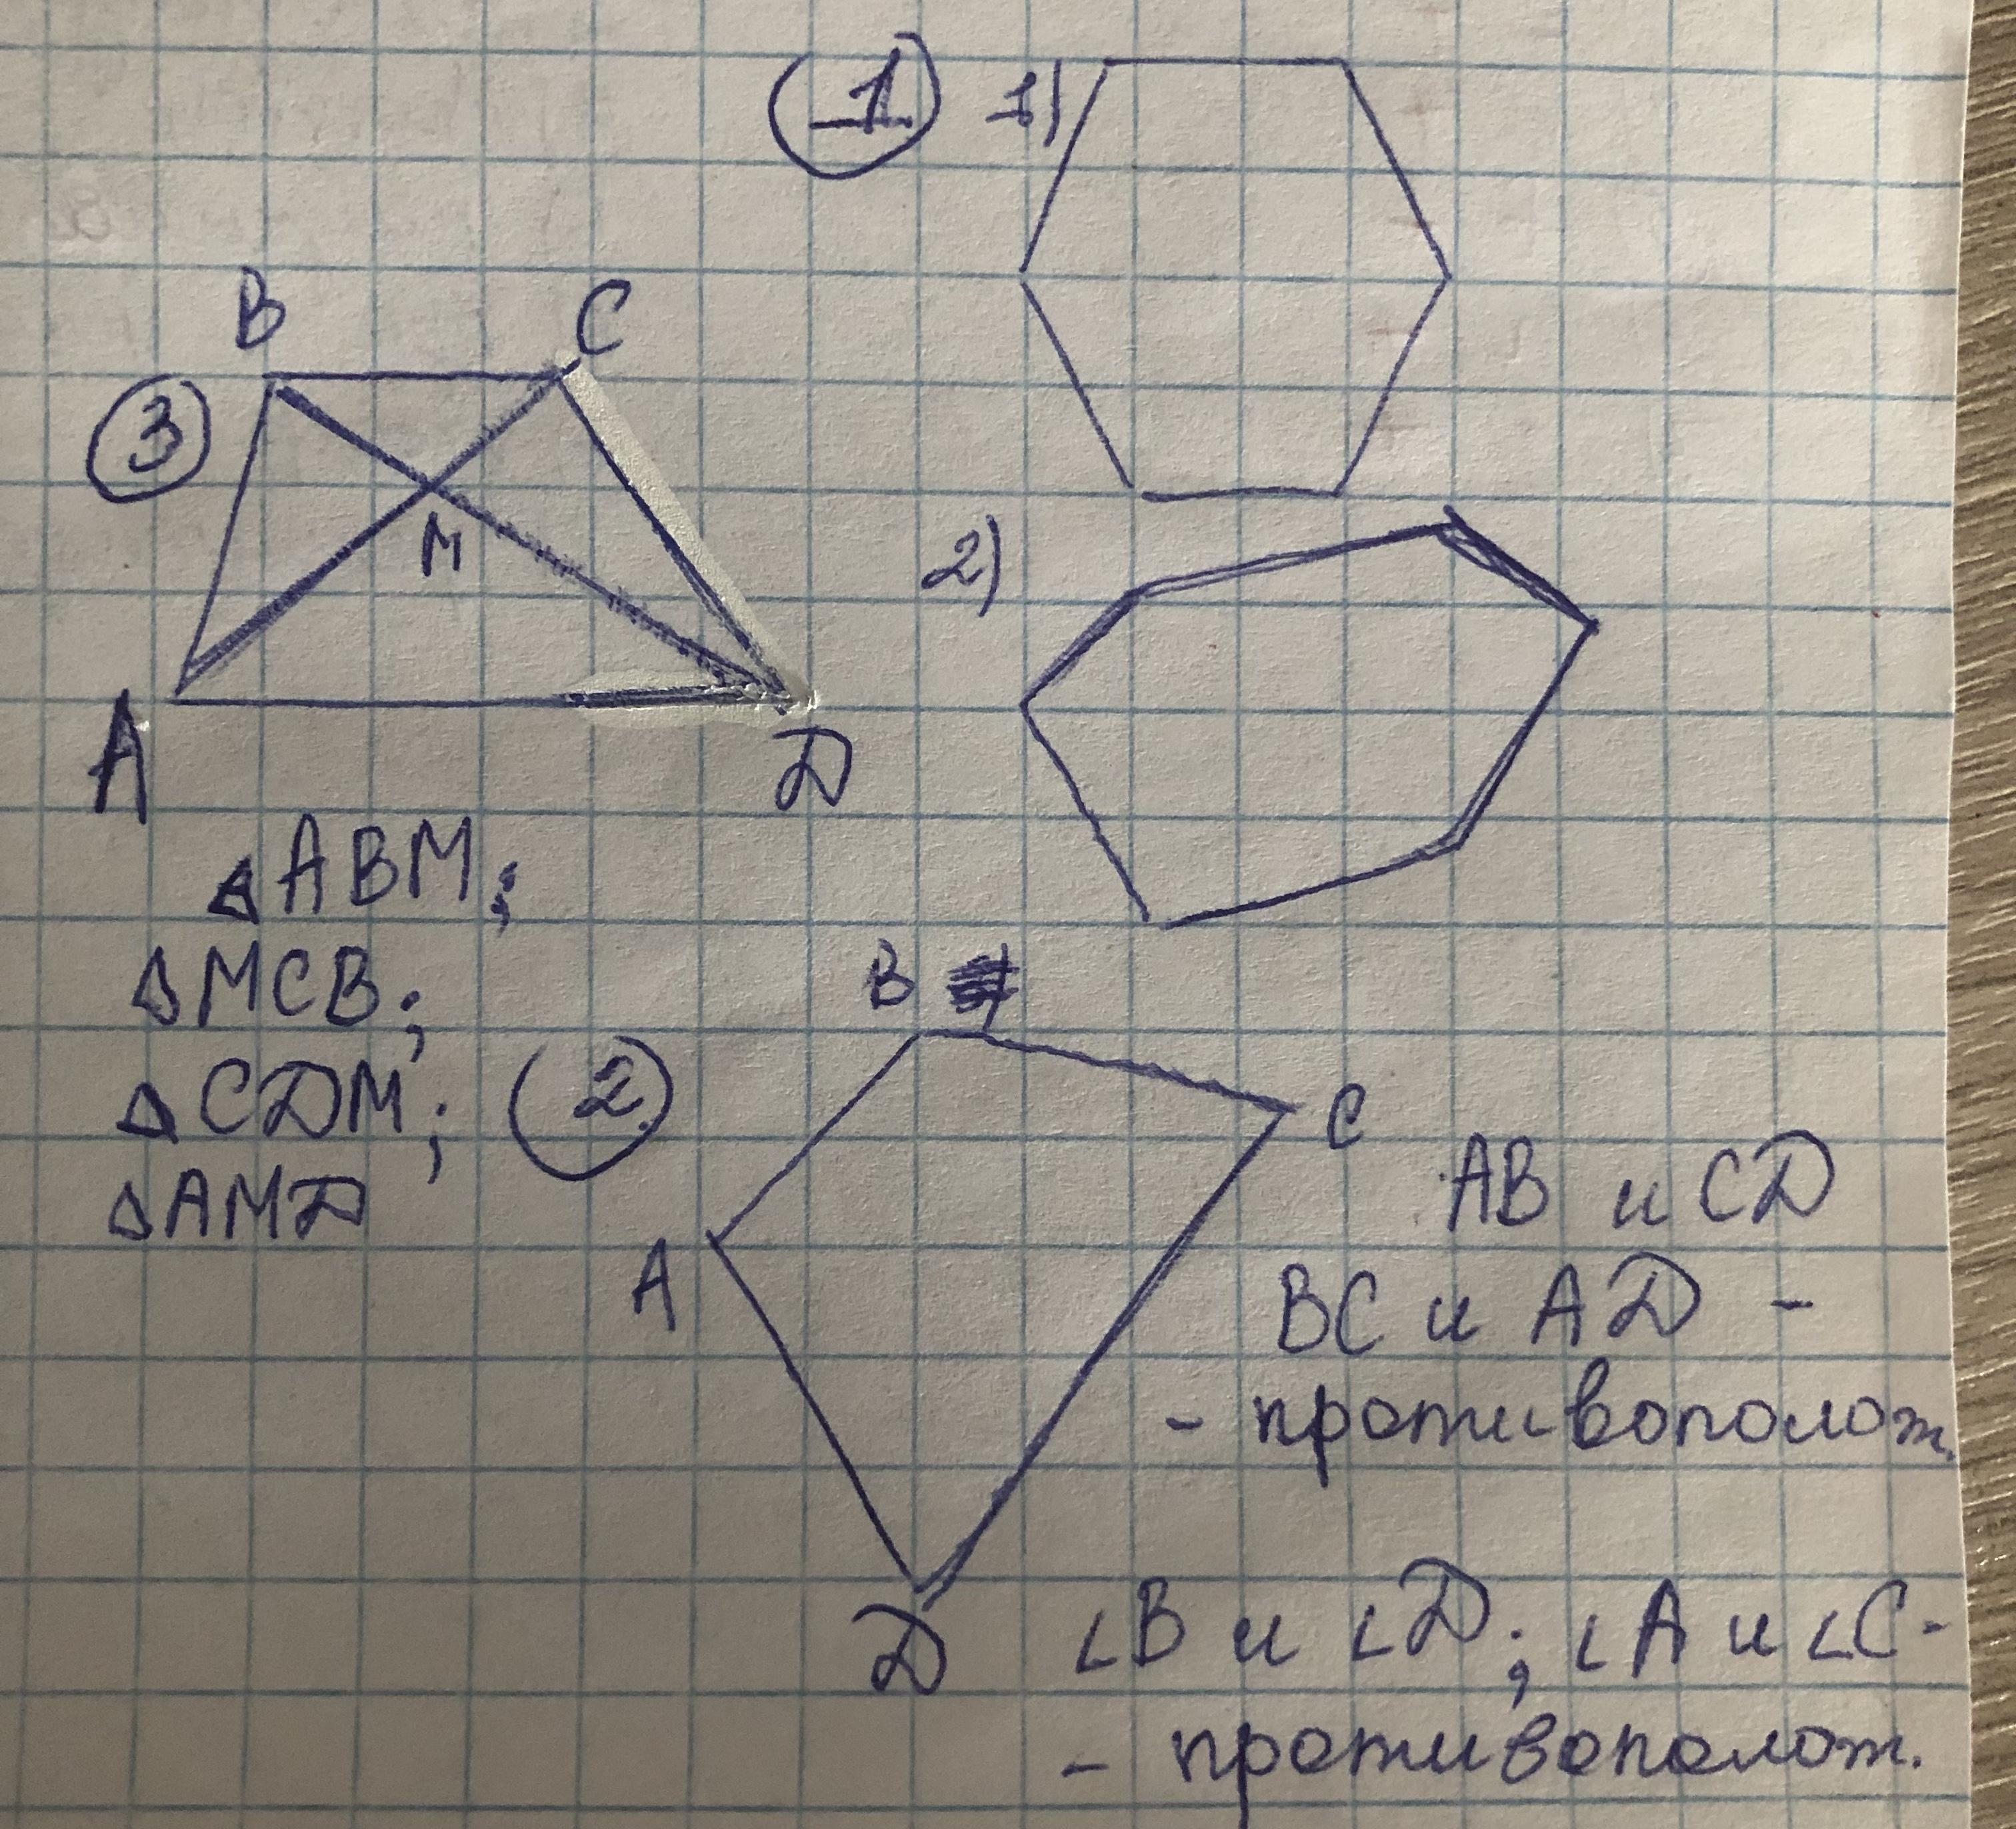 1 1)
B C
3
M
A
D
△ABM;
△MCB;
△CDM;
△AMD
2)
2
B
C
A
D
AB и CD
BC и AD -
- противополож.
∠B и ∠D; ∠A и ∠C-
- противополож.